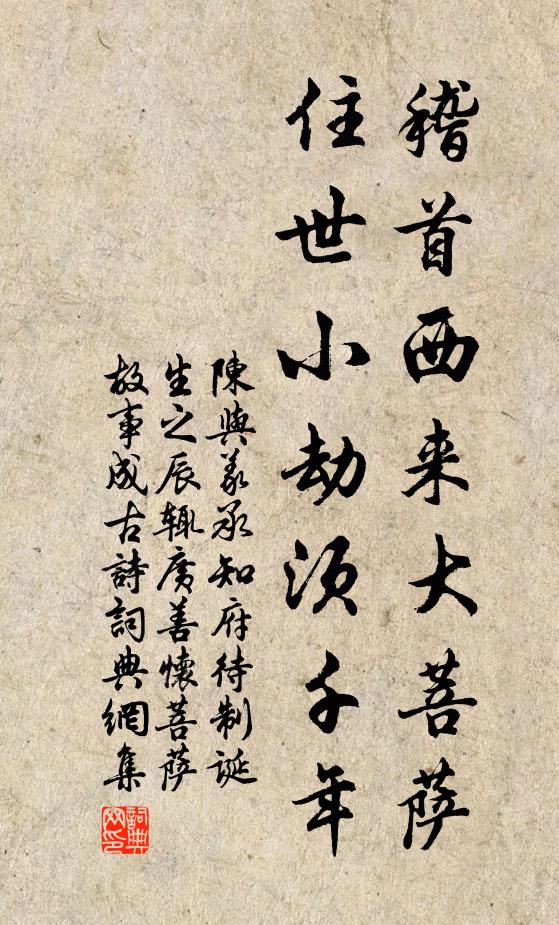 稽首西来大菩薩
住世小劫須千年
陳與義承知府待制誕
生之辰輒廣善懷菩薩
故事成古詩詞典網集
詞典
网印